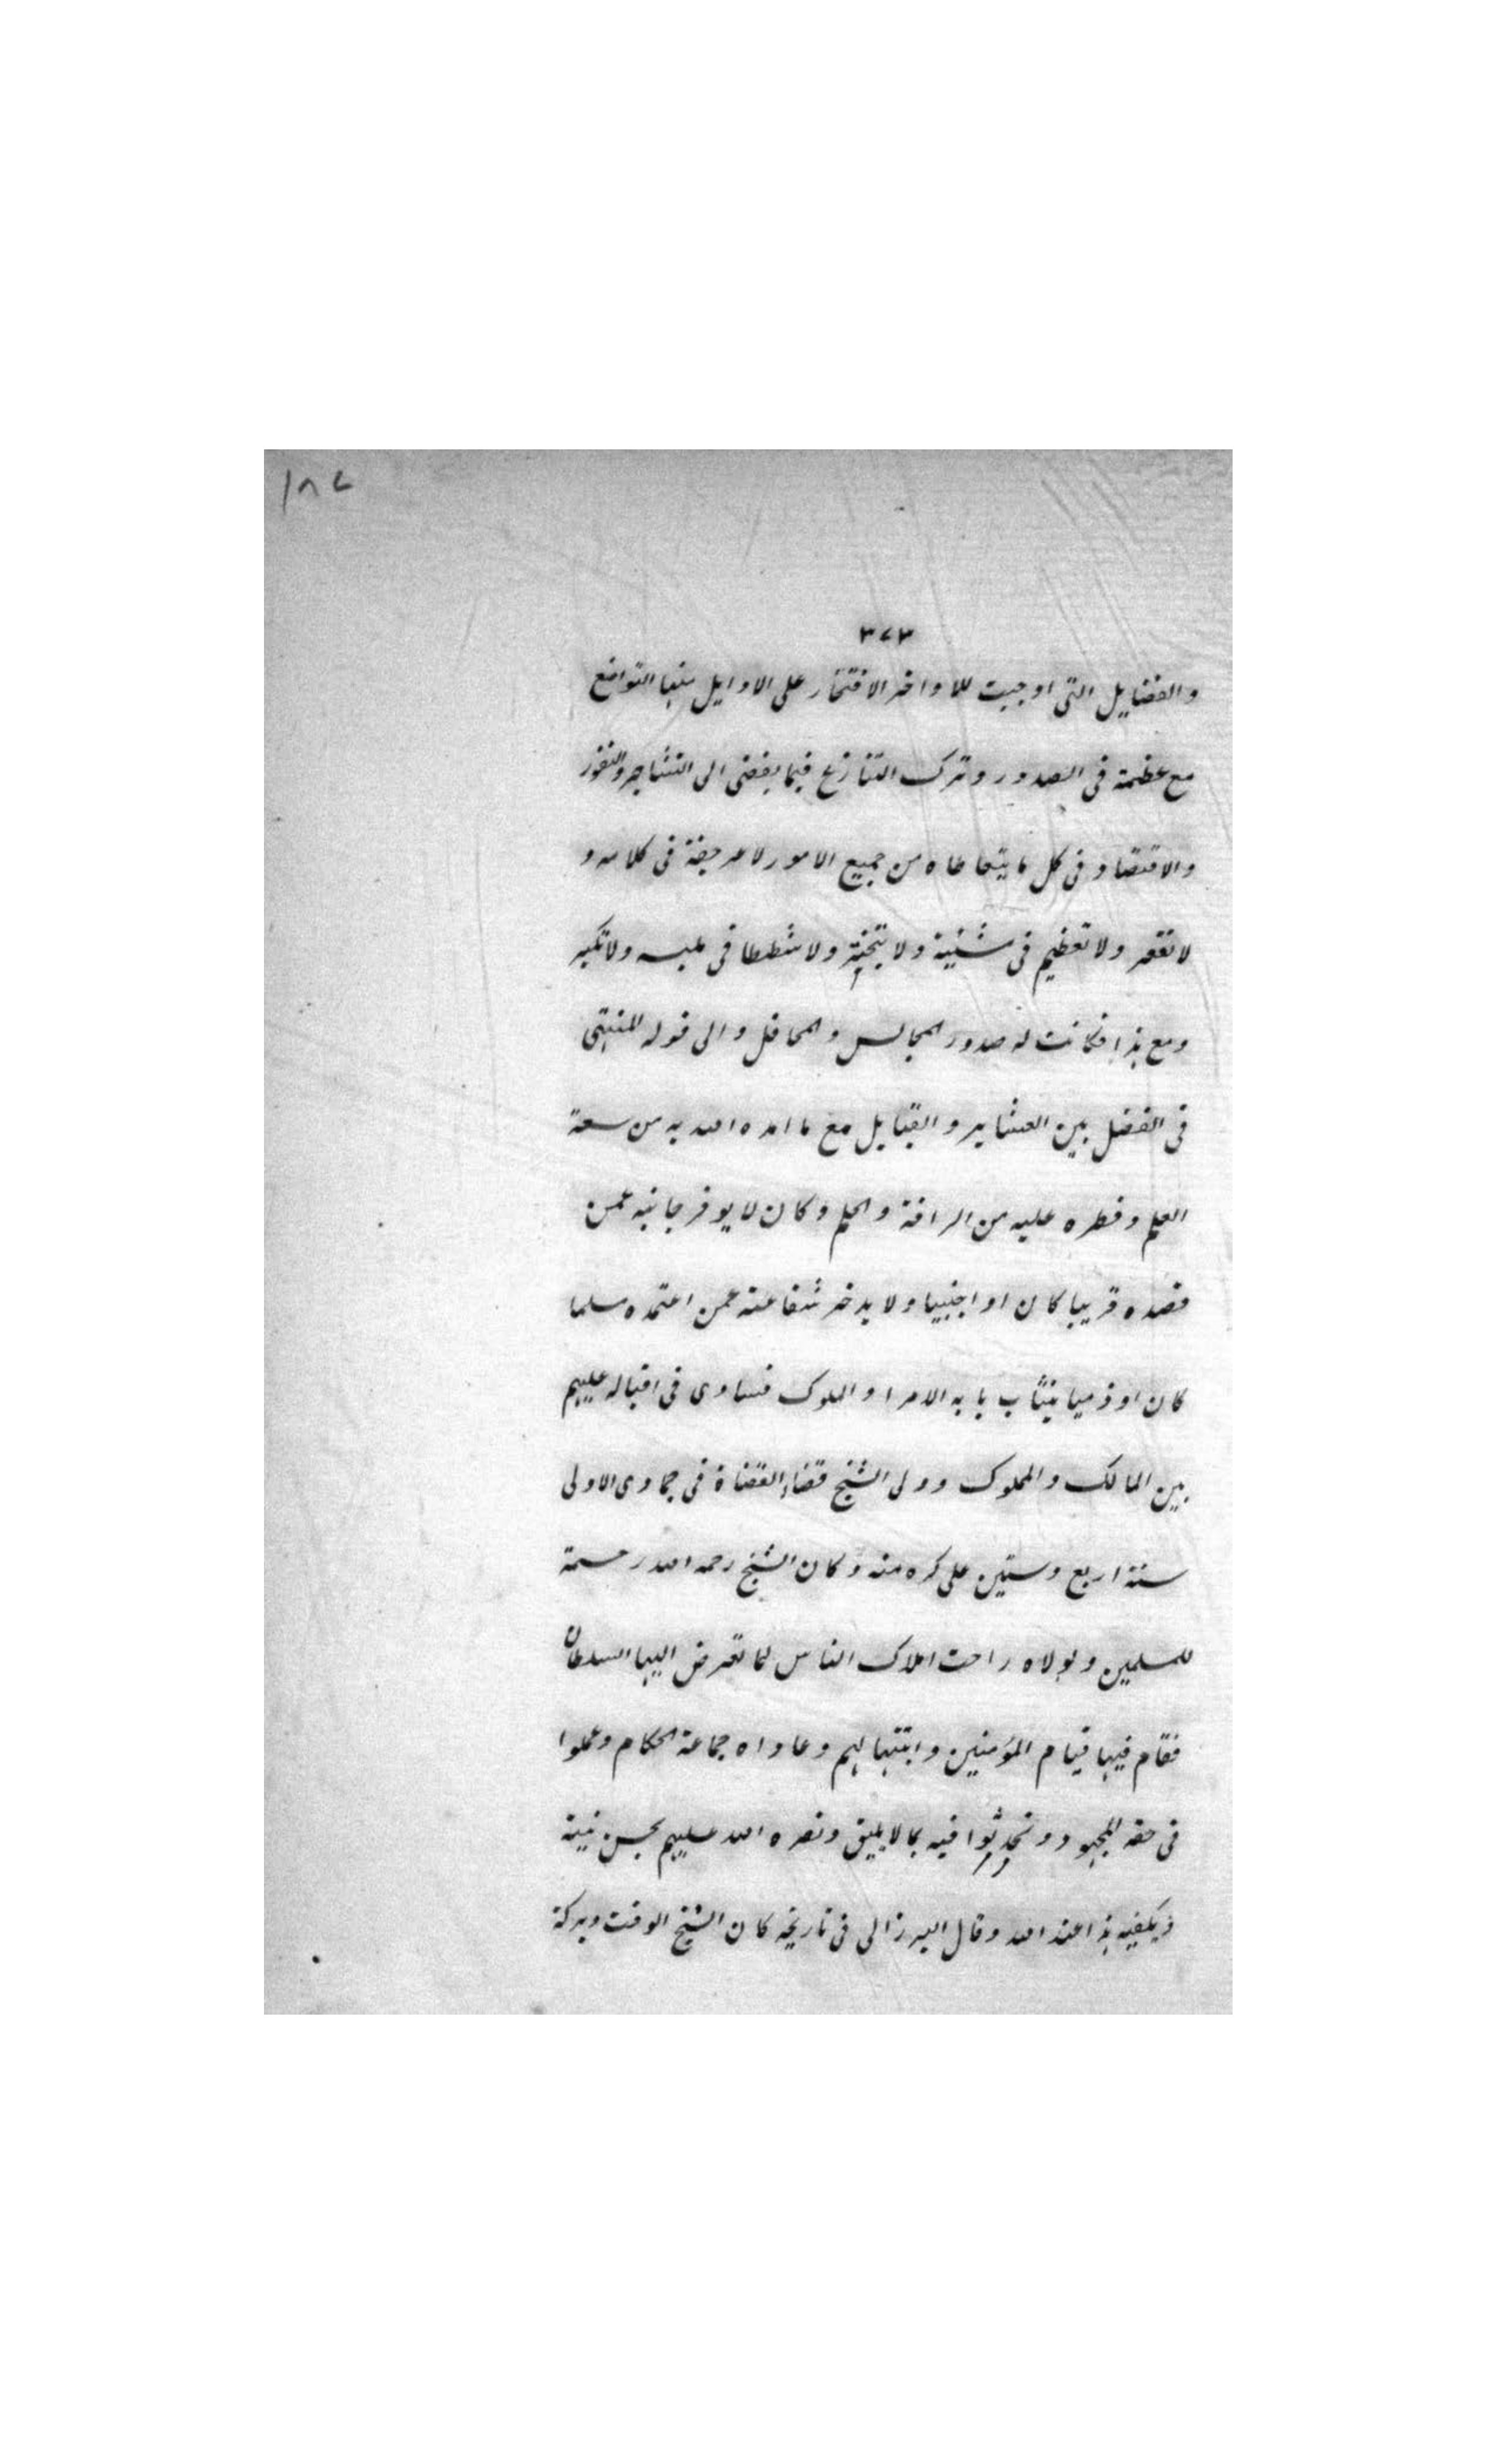 ١٨٧
٣٧٣
والفضايل التى اوجبت للاواخر الافتخار على الاوايل منها التواضع
مع عظمة فى الصدور وترك التنازع فيما يفضى الى التشاجر والنفور
والاقتصاد فى كل ما يتعاطاه من جميع الامور لا عرجفة فى كلامه و
لا تقعر ولا تعظيم فى مشيئة ولا تبختر ولا شططا فى ملبسه ولا تكبر
ومع هذا فكانت له صدور المجالس والمحافل والى قوله المنتهى
فى الفضل بين العشاير والقبايل مع ما امده الله به من سعة
العلم وفطره عليه من الرافة والحلم وكان لا يوفر جانبه عمن
قصده قريبا كان او اجنبيا ولا يدخر شفاعته عمن اعتمده مسلما
كان او ذميا ينتاب بابه الامرا والملوك فساوى فى اقباله عليهم
بين المالك والمملوك وولى الشيخ قضاء القضاة فى جمادى الاولى
سنة اربع وستين على كره منه وكان الشيخ رحمه الله رحمة
للمسلمين ولولاه راحت املاك الناس لما تعرض اليها السلطان
فقام فيها قيام المؤمنين وابتهالهم وعاداه جماعة الحكام وعملوا
فى حقه المجهود وتحدثوا فيه بما لا يليق ونصره الله عليهم بحسن نيته
ويكفيه هذا عند الله وقال البرزالى فى تاريخه كان الشيخ الوقت وبركة